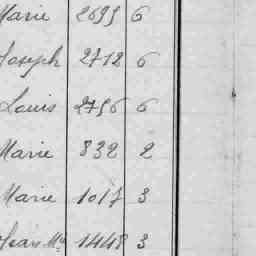 Marie 2695 6
Joseph 2712 6
Louis 2756 6
Marie 832 2
Marie 1017 3
Jean Mie 1448 3